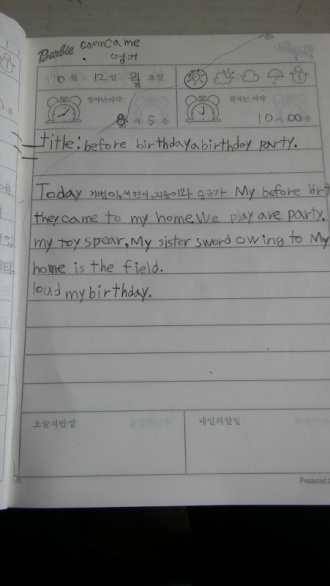 Barbie conncame
영거
10월 12일 월요일
일어난시각 잠자는시각
8시 5분 10시 00분
title: before birthday a birthday party.
Today My before birt
they came to my home. We play are party.
my toy spear, My sister sword owing to My
home is the field.
loud my birthday.
오늘의반성 내일의할일